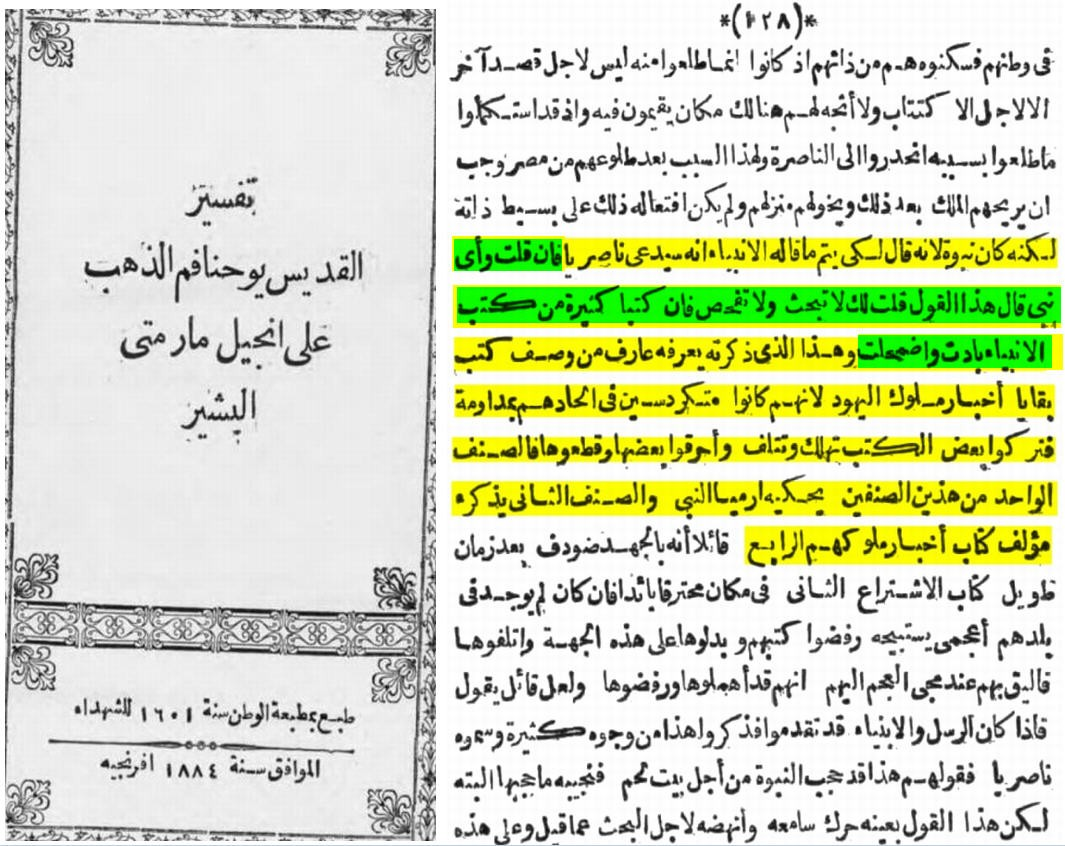 تفسير
القديس يوحنا فم الذهب
على انجيل مار متى
البشير
طبع بمطبعة الوطن سنة ١٦٠١ للشهداء
الموافق سنة ١٨٨٤ افرنجيه
*(١٢٨)*
فى وطنهم فسكنوه هم من ذاتهم اذ كانوا انما طلعوا منه ليس لاجل قصد آخر
الا لاجل الا كتتاب ولا أتجه لهم هنالك مكان يقيمون فيه واذ قد استكملوا
ما طلعوا بسببه انحدروا الى الناصرة ولهذا السبب بعد طلوعهم من مصر وجب
ان يريحهم الملك بعد ذلك ويخولهم منزلهم ولم يكن افتعاله ذلك على بسيط ذاته
لكنه كان نبوة لانه قال لكى يتم ما قاله الانبياء انه سيدعى ناصريا فان قلت وأى
نبى قال هذا القول قلت لك لا تبحث ولا تفحص فان كتبا كثيرة من كتب
الانبياء بادت واضمحلت وهذا الذى ذكرته يعرفه عارف من وصف كتب
بقايا أخبار ملوك اليهود لانهم كانوا متكردسين فى الحادهم بمداومة
فتركوا بعض الكتب تهلك وتتلف وأحرقوا بعضها وقطعوها فالصنف
الواحد من هذين الصنفين يحكيه ارميا النبى والصنف الثانى يذكره
مؤلف كتاب أخبار ملوكهم الرابع قائلا أنه بالجهد ضودف بعد زمان
طويل كتاب الاشتراع الثانى فى مكان محترقا بائدا فان كان لم يوجد فى
بلدهم أعجمى يستبيحه رفضوا كتبهم و بدلوها على هذه الجهة واتلفوها
فاليق بهم عند مجى العجم اليهم انهم قد أهملوها ورفضوها ولعل قائل يقول
فاذا كان الرسل والانبياء قد تقدموا فذكروا هذا من وجوه كثيرة وسموه
ناصريا فقولهم هذا قد حجب النبوة من أجل بيت لحم فنجيبه ما حجبها البته
لكن هذا القول بعينه حرك سامعه وأنهضه لاجل البحث عما قيل وعلى هذه